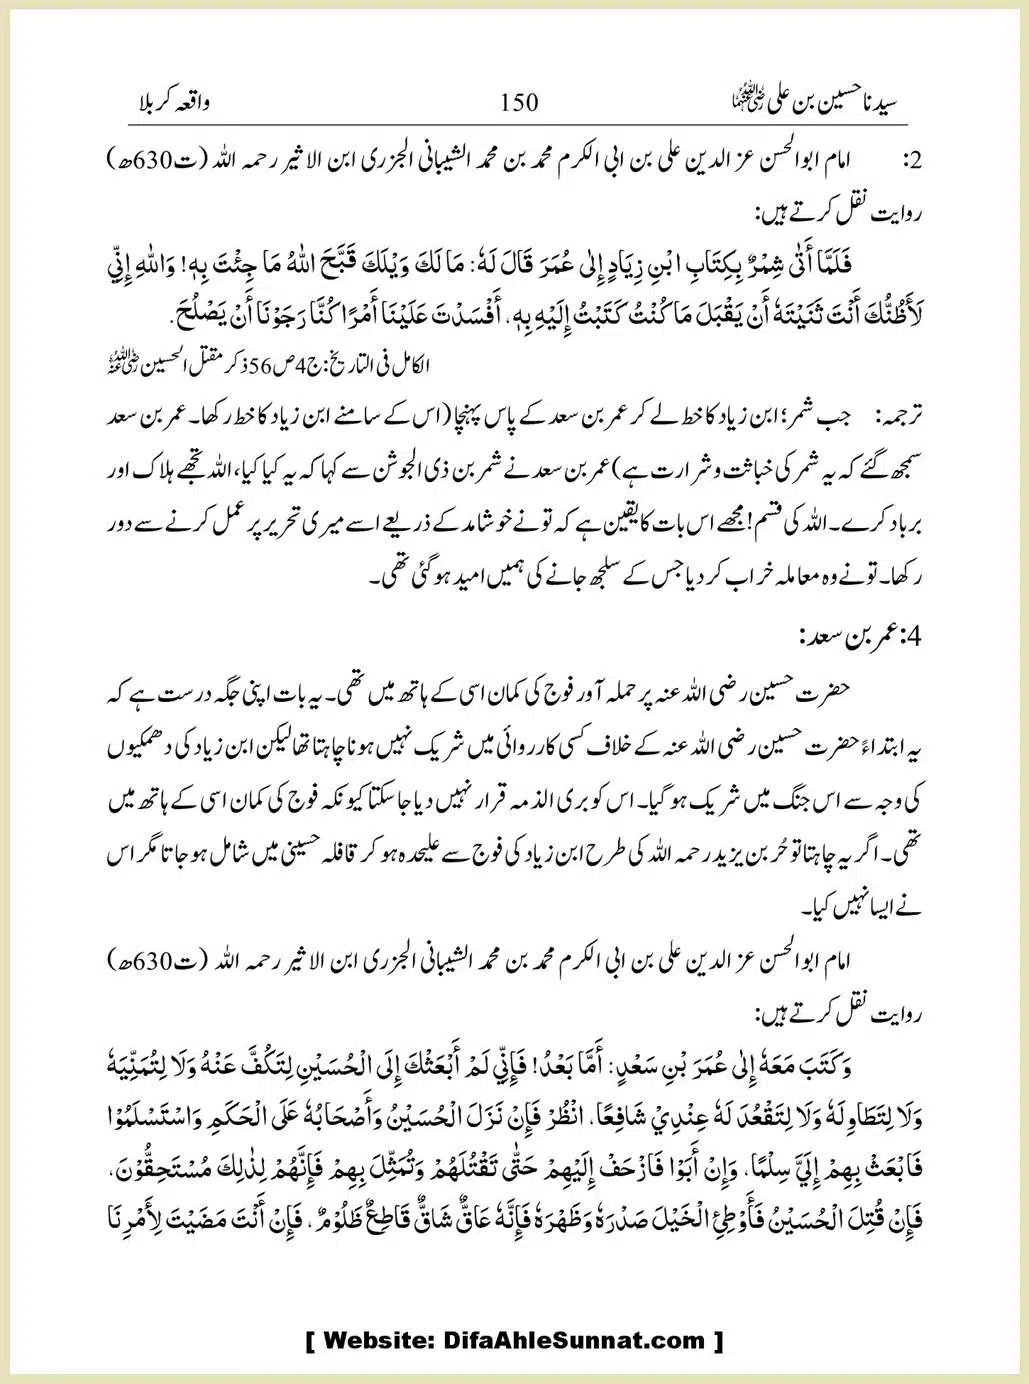 سیدنا حسین بن علی رضی اللہ عنہما 150 واقعہ کربلا
2: امام ابوالحسن عز الدین علی بن ابی الکرم محمد بن محمد الشیبانی الجزری ابن الاثیر رحمہ اللہ (ت630ھ)
روایت نقل کرتے ہیں:
فَلَمَّا أَتٰى شِمْرٌ بِكِتَابِ ابْنِ زِيَادٍ إِلٰى عُمَرَ قَالَ لَهٗ: مَا لَكَ وَيْلَكَ قَبَّحَ اللهُ مَا جِئْتَ بِهٖ! وَاللهِ إِنِّيْ
لَأَظُنُّكَ أَنْتَ ثَنَيْتَهٗ أَنْ يَقْبَلَ مَا كُنْتُ كَتَبْتُ إِلَيْهِ بِهٖ، أَفْسَدْتَ عَلَيْنَا أَمْرًا كُنَّا رَجَوْنَا أَنْ يَصْلُحَ.
الکامل فی التاریخ: ج4ص56 ذکر مقتل الحسین رضی اللہ عنہ
ترجمہ: جب شمر؛ ابن زیاد کا خط لے کر عمر بن سعد کے پاس پہنچا (اس کے سامنے ابن زیاد کا خط رکھا۔ عمر بن سعد
سمجھ گئے کہ یہ شمر کی خباثت و شرارت ہے) عمر بن سعد نے شمر بن ذی الجوشن سے کہا کہ یہ کیا کیا، اللہ تجھے ہلاک اور
برباد کرے۔ اللہ کی قسم! مجھے اس بات کا یقین ہے کہ تو نے خوشامد کے ذریعے اسے میری تحریر پر عمل کرنے سے دور
رکھا۔ تو نے وہ معاملہ خراب کر دیا جس کے سلجھ جانے کی ہمیں امید ہو گئی تھی۔
4: عمر بن سعد:
حضرت حسین رضی اللہ عنہ پر حملہ آور فوج کی کمان اسی کے ہاتھ میں تھی۔ یہ بات اپنی جگہ درست ہے کہ
یہ ابتداءً حضرت حسین رضی اللہ عنہ کے خلاف کسی کارروائی میں شریک نہیں ہونا چاہتا تھا لیکن ابن زیاد کی دھمکیوں
کی وجہ سے اس جنگ میں شریک ہو گیا۔ اس کو بری الذمہ قرار نہیں دیا جا سکتا کیونکہ فوج کی کمان اسی کے ہاتھ میں
تھی۔ اگر یہ چاہتا تو حُر بن یزید رحمہ اللہ کی طرح ابن زیاد کی فوج سے علیحدہ ہو کر قافلہ حسینی میں شامل ہو جاتا مگر اس
نے ایسا نہیں کیا۔
امام ابوالحسن عز الدین علی بن ابی الکرم محمد بن محمد الشیبانی الجزری ابن الاثیر رحمہ اللہ (ت630ھ)
روایت نقل کرتے ہیں:
وَكَتَبَ مَعَهٗ إِلٰى عُمَرَ بْنِ سَعْدٍ: أَمَّا بَعْدُ! فَإِنِّيْ لَمْ أَبْعَثْكَ إِلَى الْحُسَيْنِ لِتَكُفَّ عَنْهُ وَلَا لِتُمَنِّيَهٗ
وَلَا لِتَطَاوِلَهٗ وَلَا لِتَقْعُدَ لَهٗ عِنْدِيْ شَافِعًا، انْظُرْ فَإِنْ نَزَلَ الْحُسَيْنُ وَأَصْحَابُهٗ عَلَى الْحَكَمِ وَاسْتَسْلَمُوْا
فَابْعَثْ بِهِمْ إِلَيَّ سِلْمًا، وَإِنْ أَبَوْا فَازْحَفْ إِلَيْهِمْ حَتّٰى تَقْتُلَهُمْ وَتُمَثِّلَ بِهِمْ فَإِنَّهُمْ لِذٰلِكَ مُسْتَحِقُّوْنَ،
فَإِنْ قُتِلَ الْحُسَيْنُ فَأَوْطِئِ الْخَيْلَ صَدْرَهٗ وَظَهْرَهٗ فَإِنَّهٗ عَاقٌّ شَاقٌّ قَاطِعٌ ظَلُوْمٌ، فَإِنْ أَنْتَ مَضَيْتَ لِأَمْرِنَا
[ Website: DifaAhleSunnat.com ]